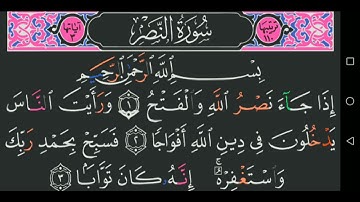 ترتيبها ١١٠ سُورَةُ النَّصْرِ آياتها ٣
بِسْمِ اللَّهِ الرَّحْمَٰنِ الرَّحِيمِ
إِذَا جَاءَ نَصْرُ اللَّهِ وَالْفَتْحُ ١ وَرَأَيْتَ النَّاسَ
يَدْخُلُونَ فِي دِينِ اللَّهِ أَفْوَاجًا ٢ فَسَبِّحْ بِحَمْدِ رَبِّكَ
وَاسْتَغْفِرْهُ ۚ إِنَّهُ كَانَ تَوَّابًا ٣